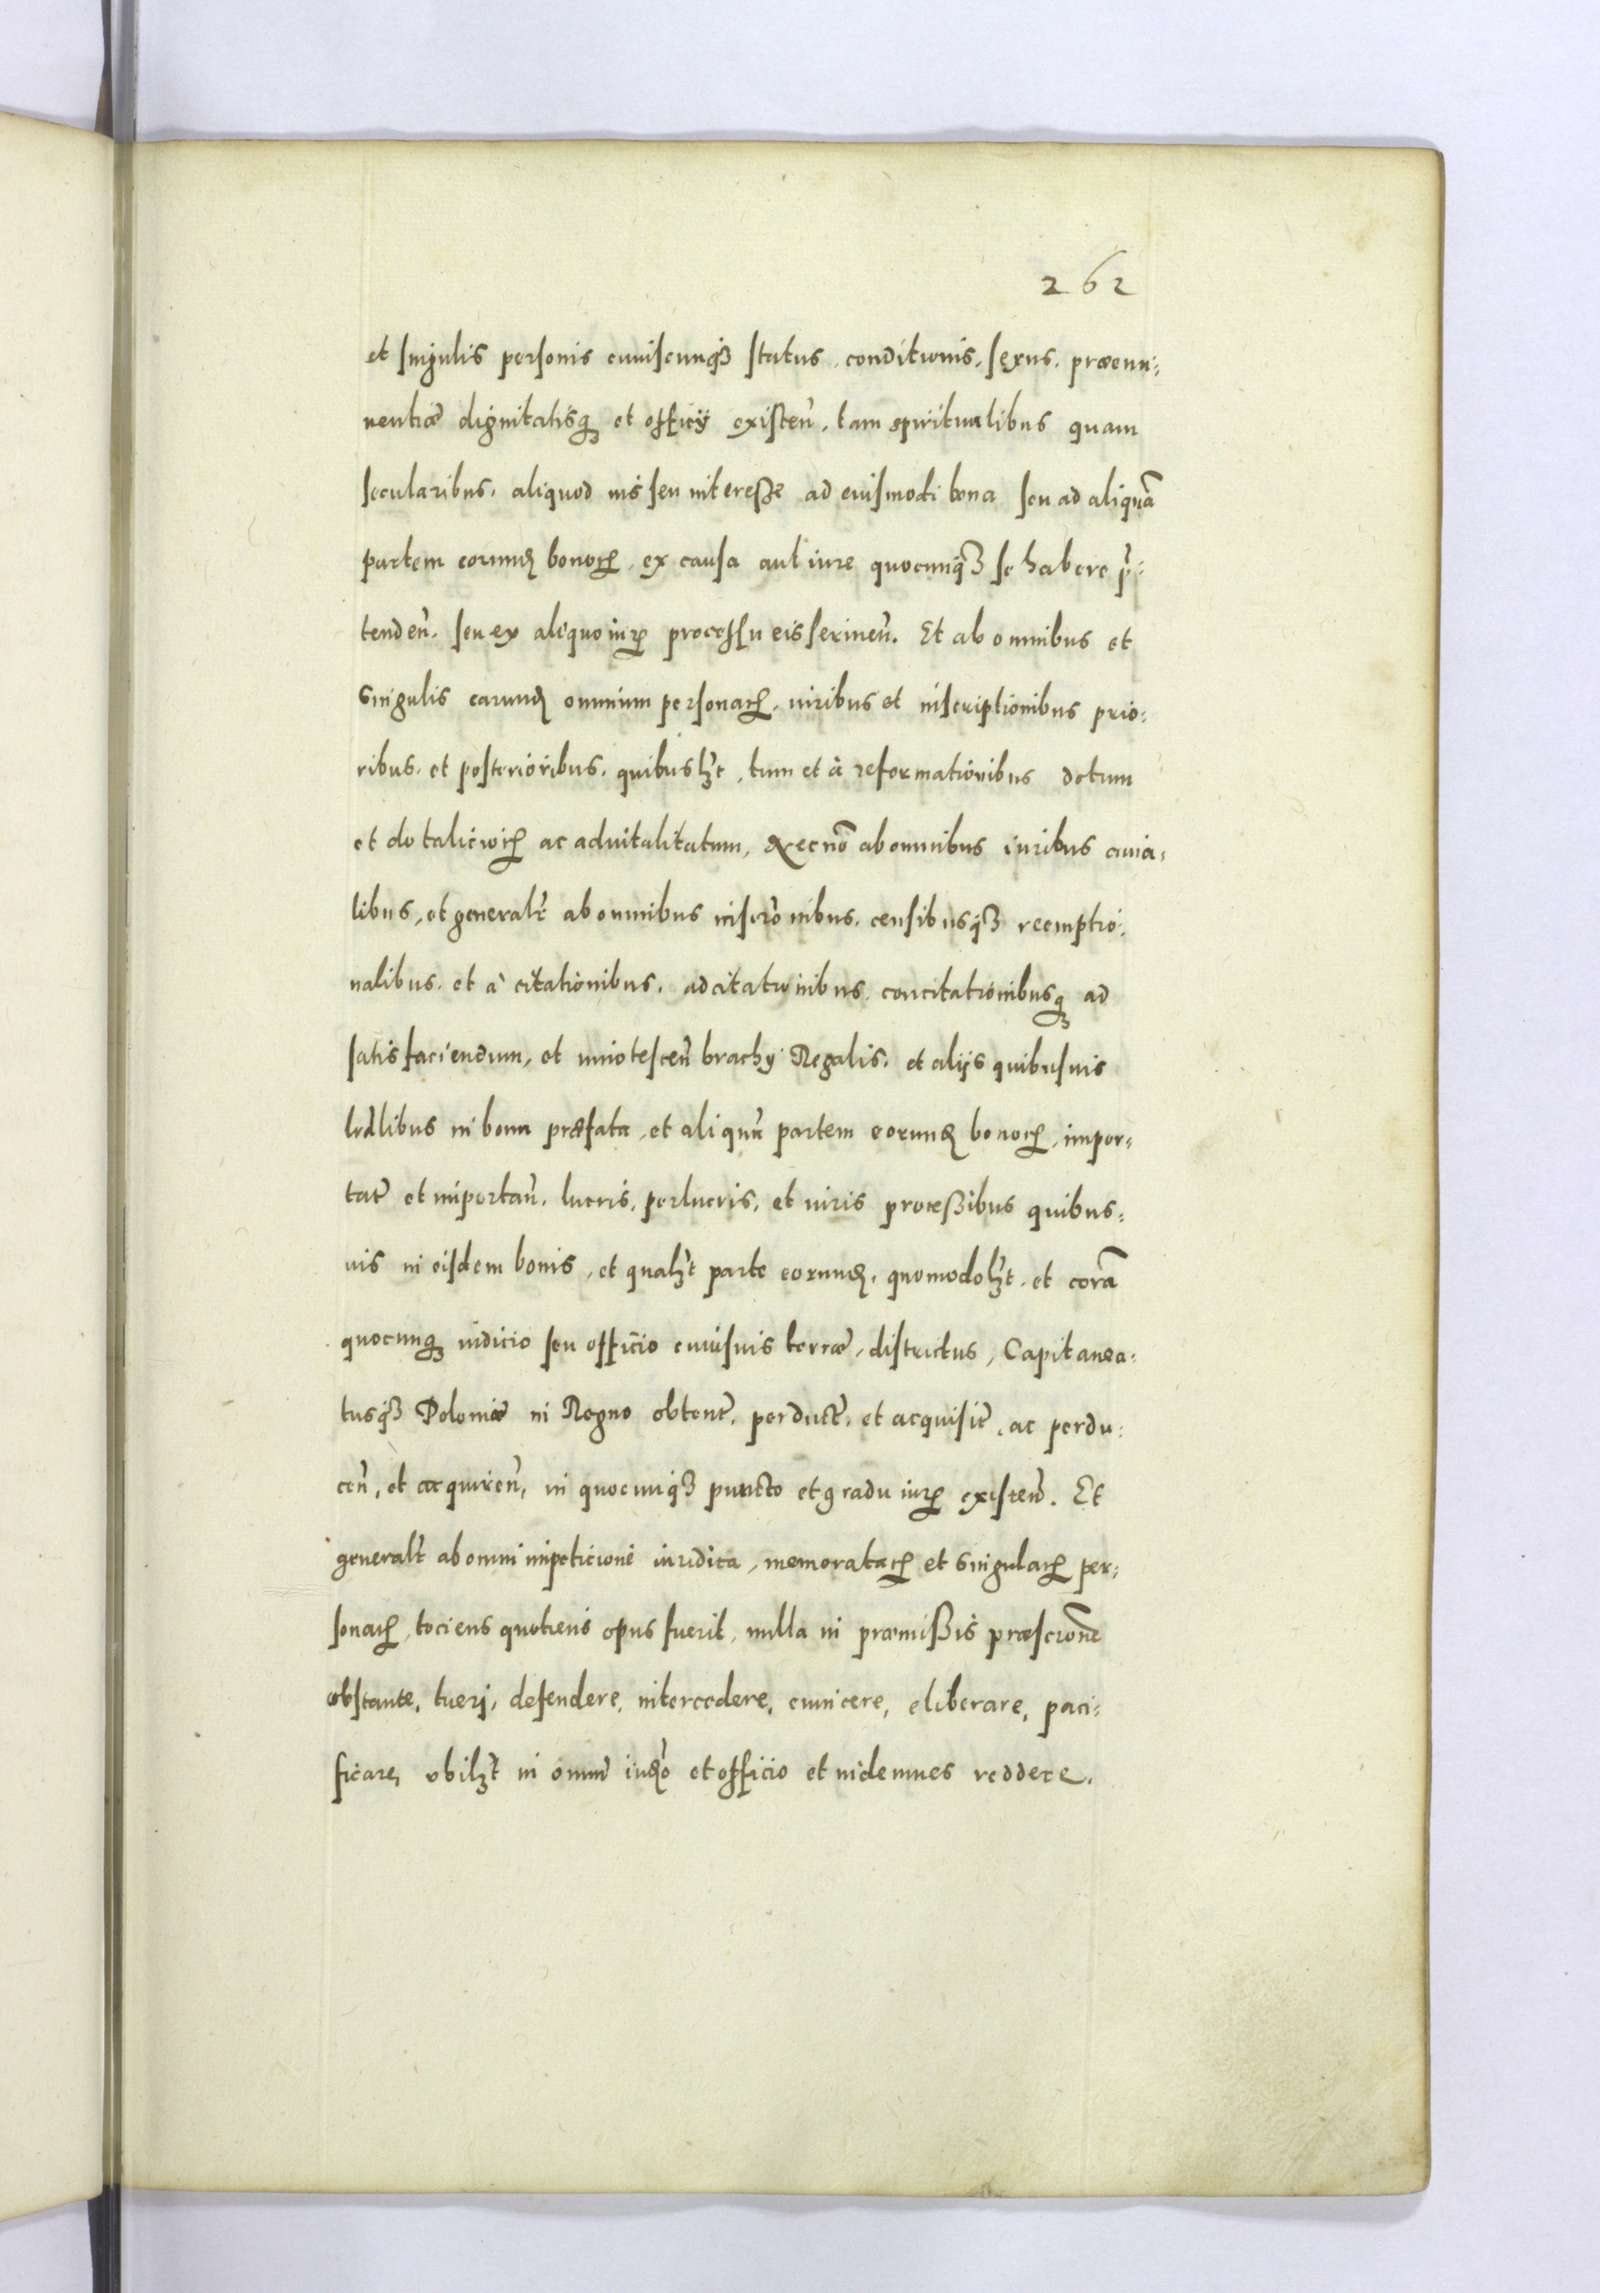 262
et singulis personis cuiuscunqꝫ status, conditionis, sexus, præemi-
nentiæ dignitatisqꝫ et officij existeñ, tam spiritualibus quam
secularibus, aliquod ius seu interesse ad eiusmodi bona seu ad aliquã
partem eorundꝫ bonoꝝ, ex causa aut iure quocunqꝫ se habere p̃-
tendeñ, seu ex aliquo iurꝭ processu eis servieñ. Et ab omnibus et
singulis earundꝫ omnium personaꝝ, iuribus et inscriptionibus prio-
ribus, et posterioribus, quibuslꝫt, tum et à reformationibus dotum
et dotalicioꝝ ac advitalitatum, Necnõ ab omnibus iuribus avia-
libus, et generalr̃ ab omnibus inscrõnibus, censibusqꝫ reemptio-
nalibus, et à citationibus, adcitationibus, concitationibusqꝫ ad
satisfaciendum, et innotesceñ brachij Regalis, et alijs quibusvis
lrãlibus in bona præfata, et aliquã partem eorundꝫ bonoꝝ, impor-
tat̃ et importañ, lucris, perlucris, et iuris processibus quibus-
vis in eisdem bonis, et qualꝫt parte eorundꝫ, quomodolꝫt, et corã
quocunqꝫ iudicio seu officio cuiusvis terræ, districtus, Capitanea-
tusqꝫ Poloniæ in Regno obtent̃, perduct̃, et acquisit̃, ac perdu-
ceñ, et acquireñ, in quocunqꝫ puncto et gradu iurꝭ existeñ. Et
generalr̃ ab omni impeticione iuridica, memorataꝝ et singulaꝝ per-
sonaꝝ, tociens quotiens opus fuerit, nulla in præmissis præscrõne
obstante, tueri, defendere, intercedere, evincere, eliberare, paci-
ficare, ubilꝫt in omni iudõ et officio et indemnes reddere.